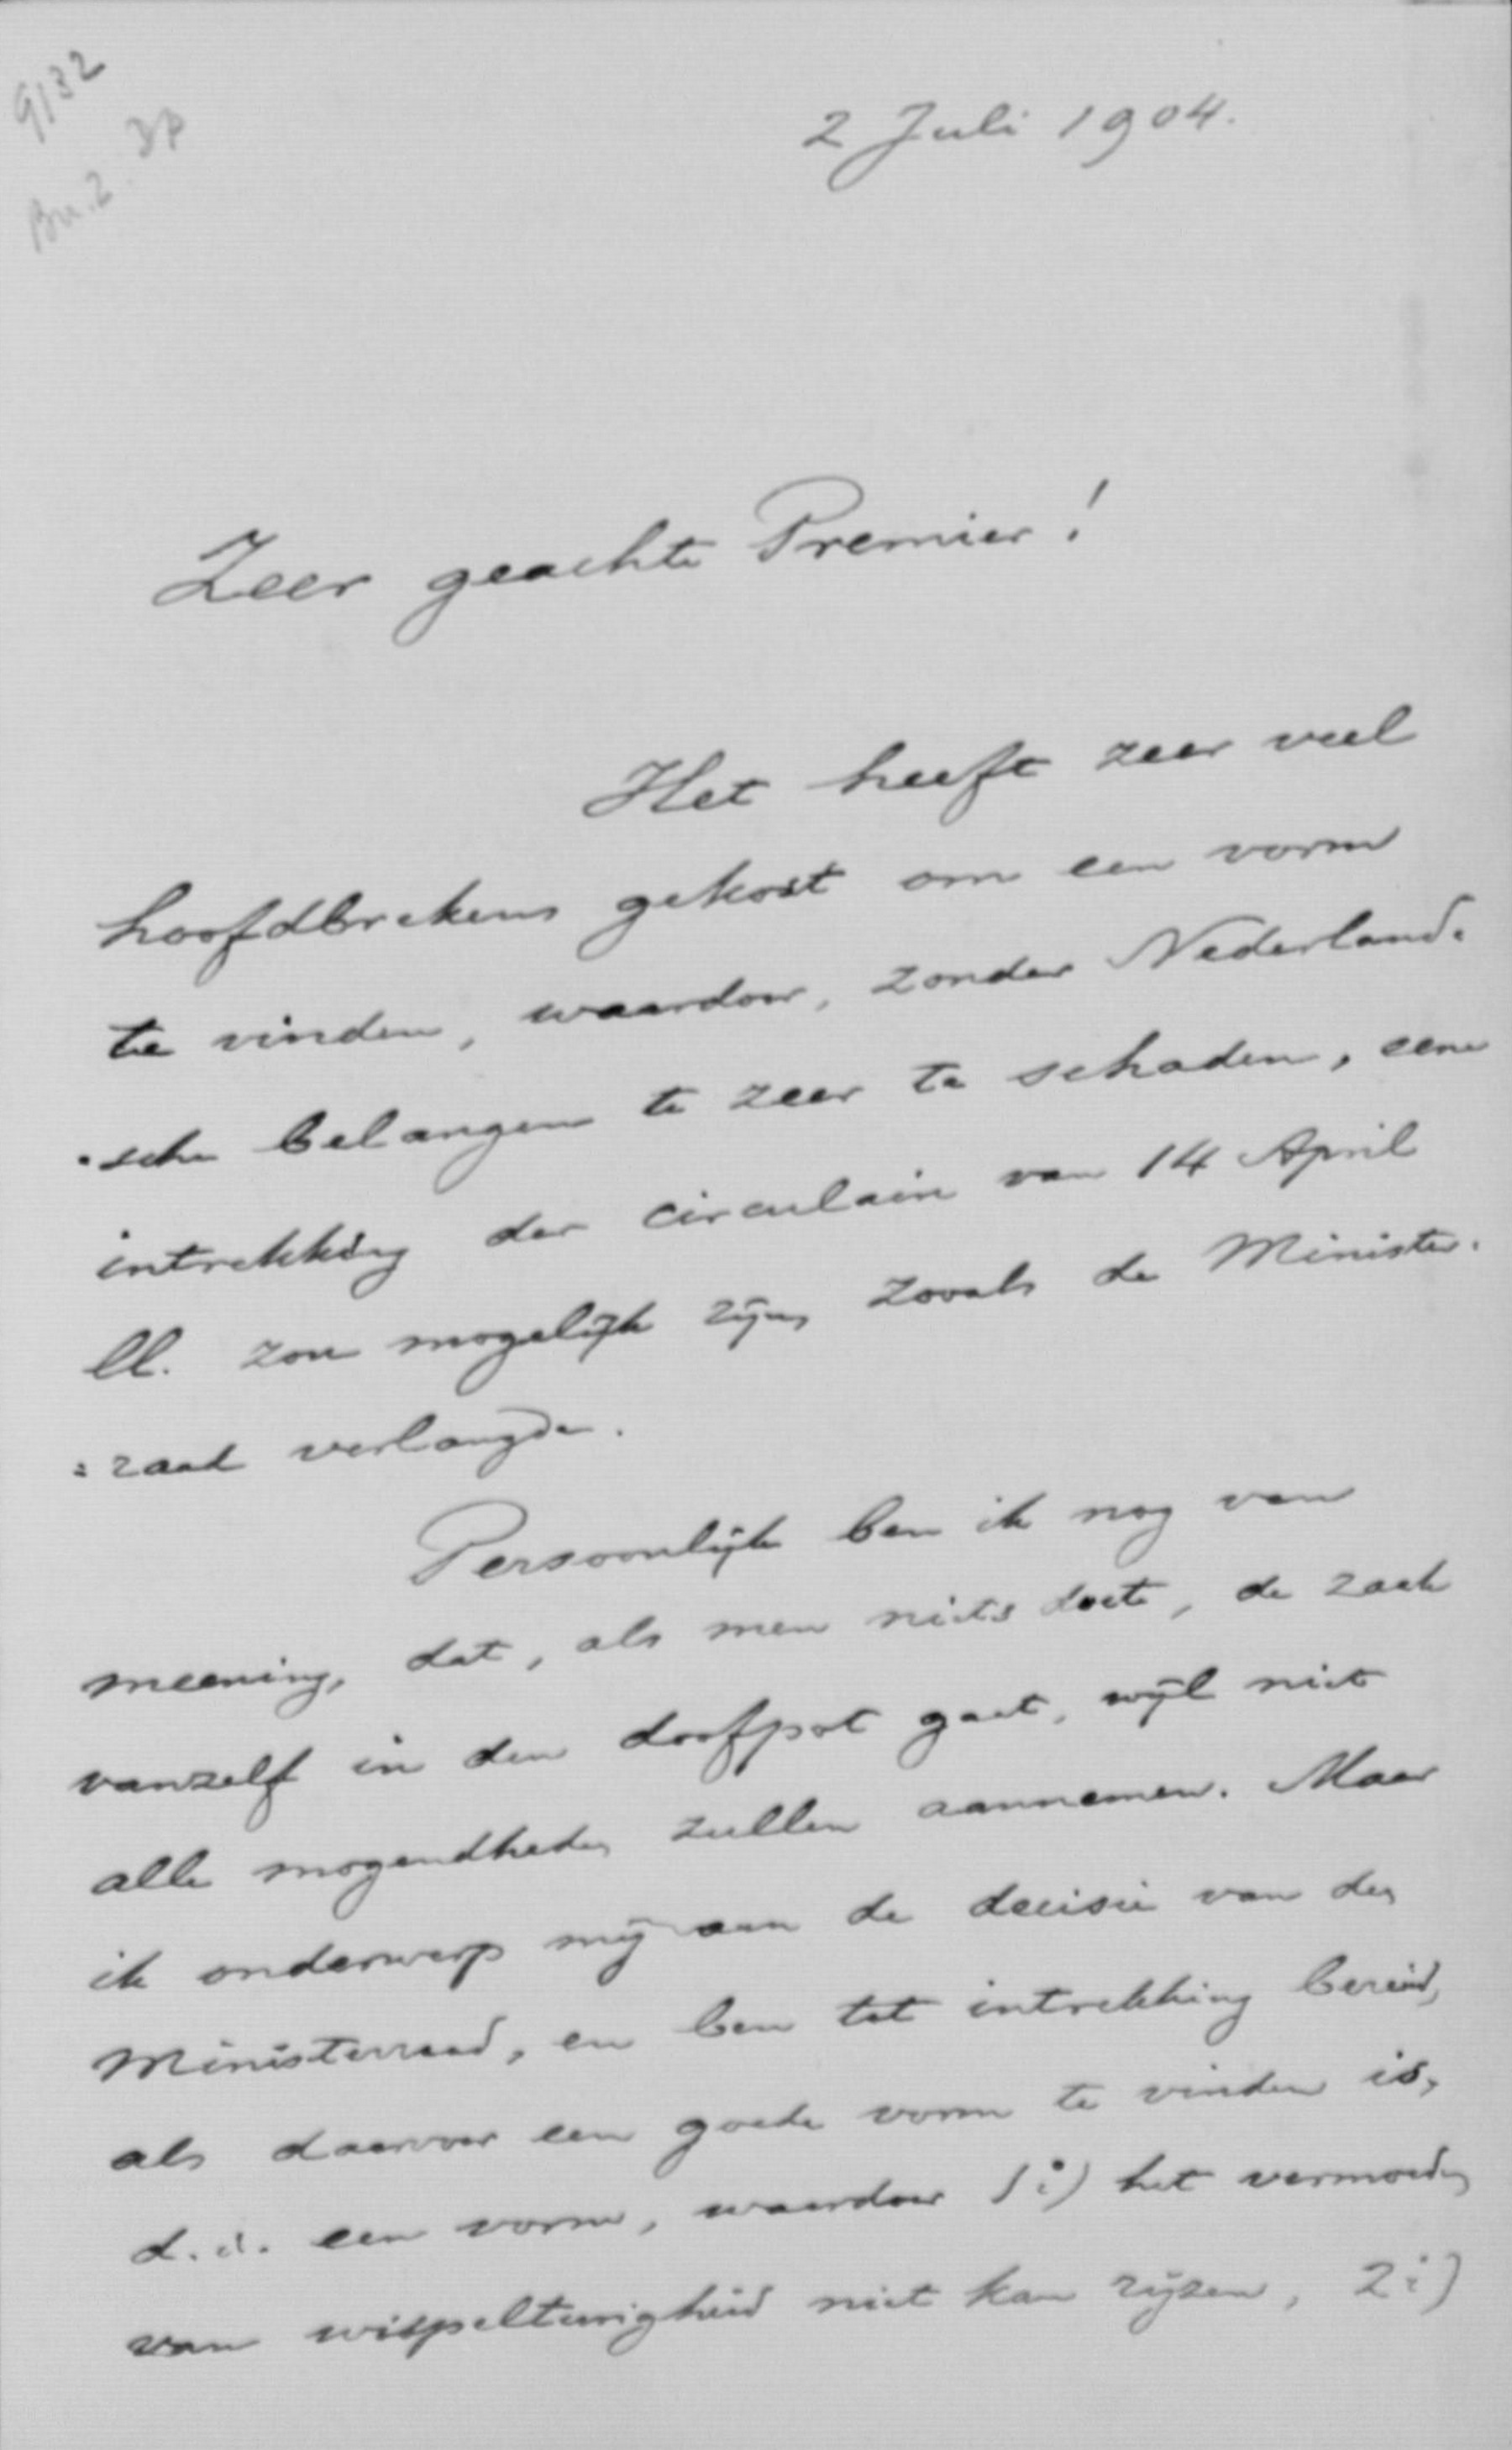 9132
3p
2 Juli 1904.
Zeer geachte Premier!
Het heeft zeer veel
hoofdbrekens gekost om een vorm
te vinden, waardoor, zonder Nederland-
-sche belangen te zeer te schaden, eene
intrekking der circulaire van 14 April
ll. zou mogelijk zijn, zooals de Minister-
=raad verlangde.
Persoonlijk ben ik nog van
meening, dat, als men niets doet, de zaak
vanzelf in den doofpot gaat, wijl niet
alle mogendheden zullen aannemen. Maar
ik onderwerp mij aan de decisie van den
Ministerraad, en ben tot intrekking bereid,
als daarvoor een goede vorm te vinden is,
d.i. een vorm, waardoor 1°) het vermoeden
van wispelturigheid niet kan rijzen, 2°)